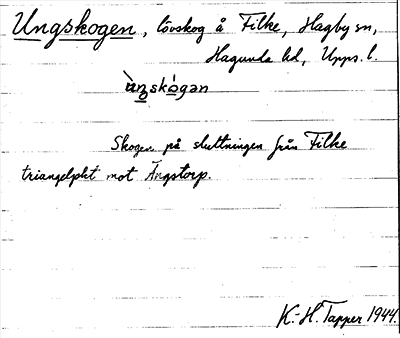 Ungskogen, lövskog å Filke, Hagby sn,
Hagunda hd, Upps. l.
ùŋskógan
Skogen på sluttningen från Filke
triangelpkt mot Ängstorp.
K.-H. Tapper 1944.